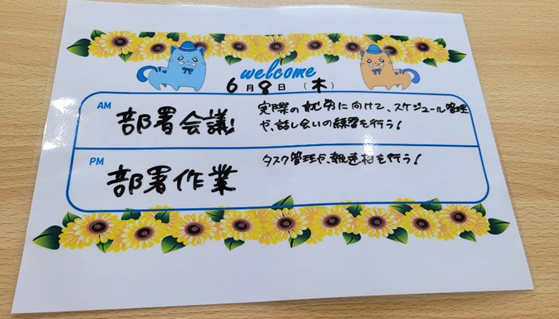 welcome
6月8日（木）
AM
部署会議!
実際の就労に向けて、スケジュール管理
や、話し合いの練習を行う!
PM
部署作業
タスク管理や、報連相を行う!